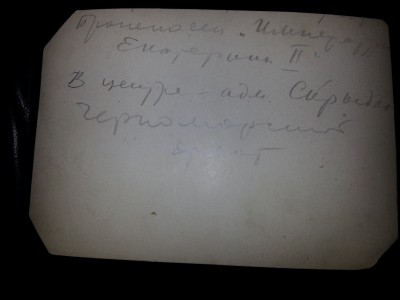 Броненосец „Императр
Екатерина II"
В центре - адм. Скрыдл
Черноморский
флот